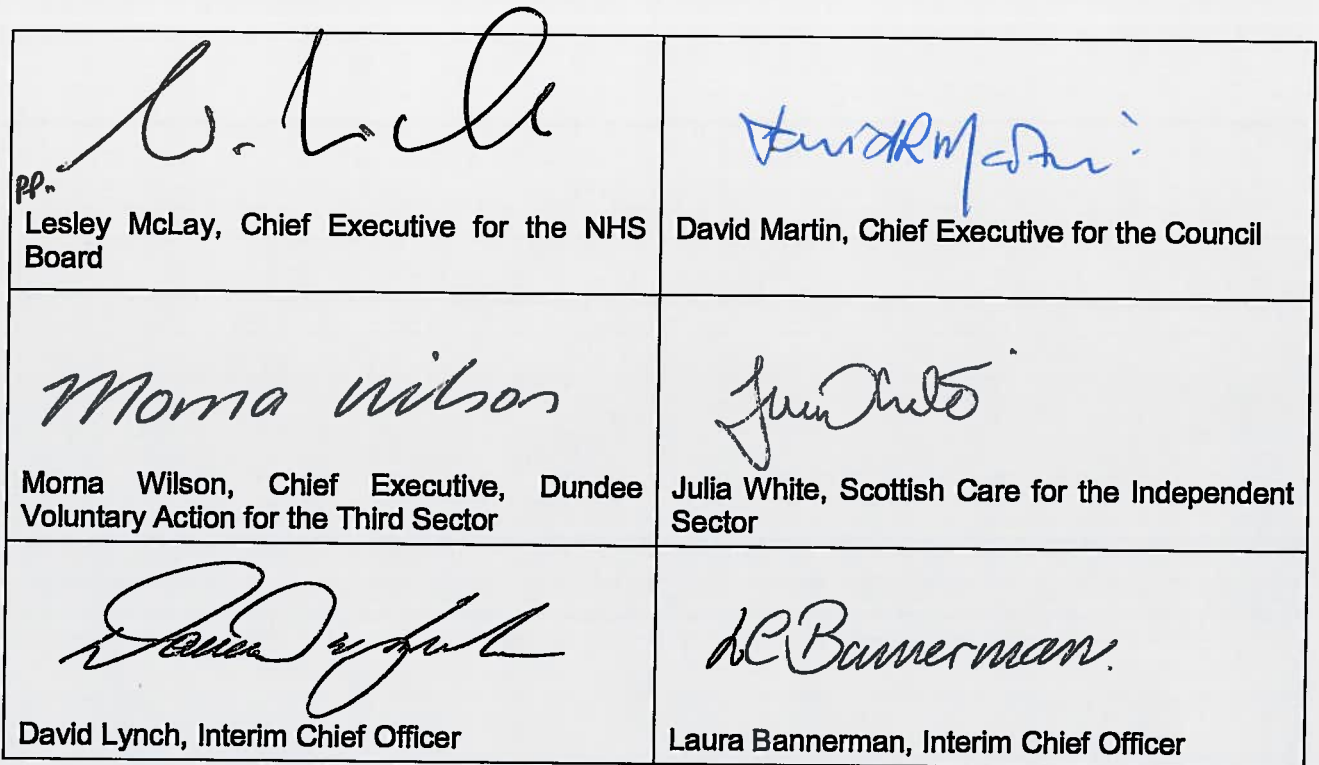 pp.
Lesley McLay, Chief Executive for the NHS
Board
David R Martin
David Martin, Chief Executive for the Council
Morna Wilson
Morna Wilson, Chief Executive, Dundee
Voluntary Action for the Third Sector
Julia White, Scottish Care for the Independent
Sector
David Lynch, Interim Chief Officer
LC Bannerman.
Laura Bannerman, Interim Chief Officer